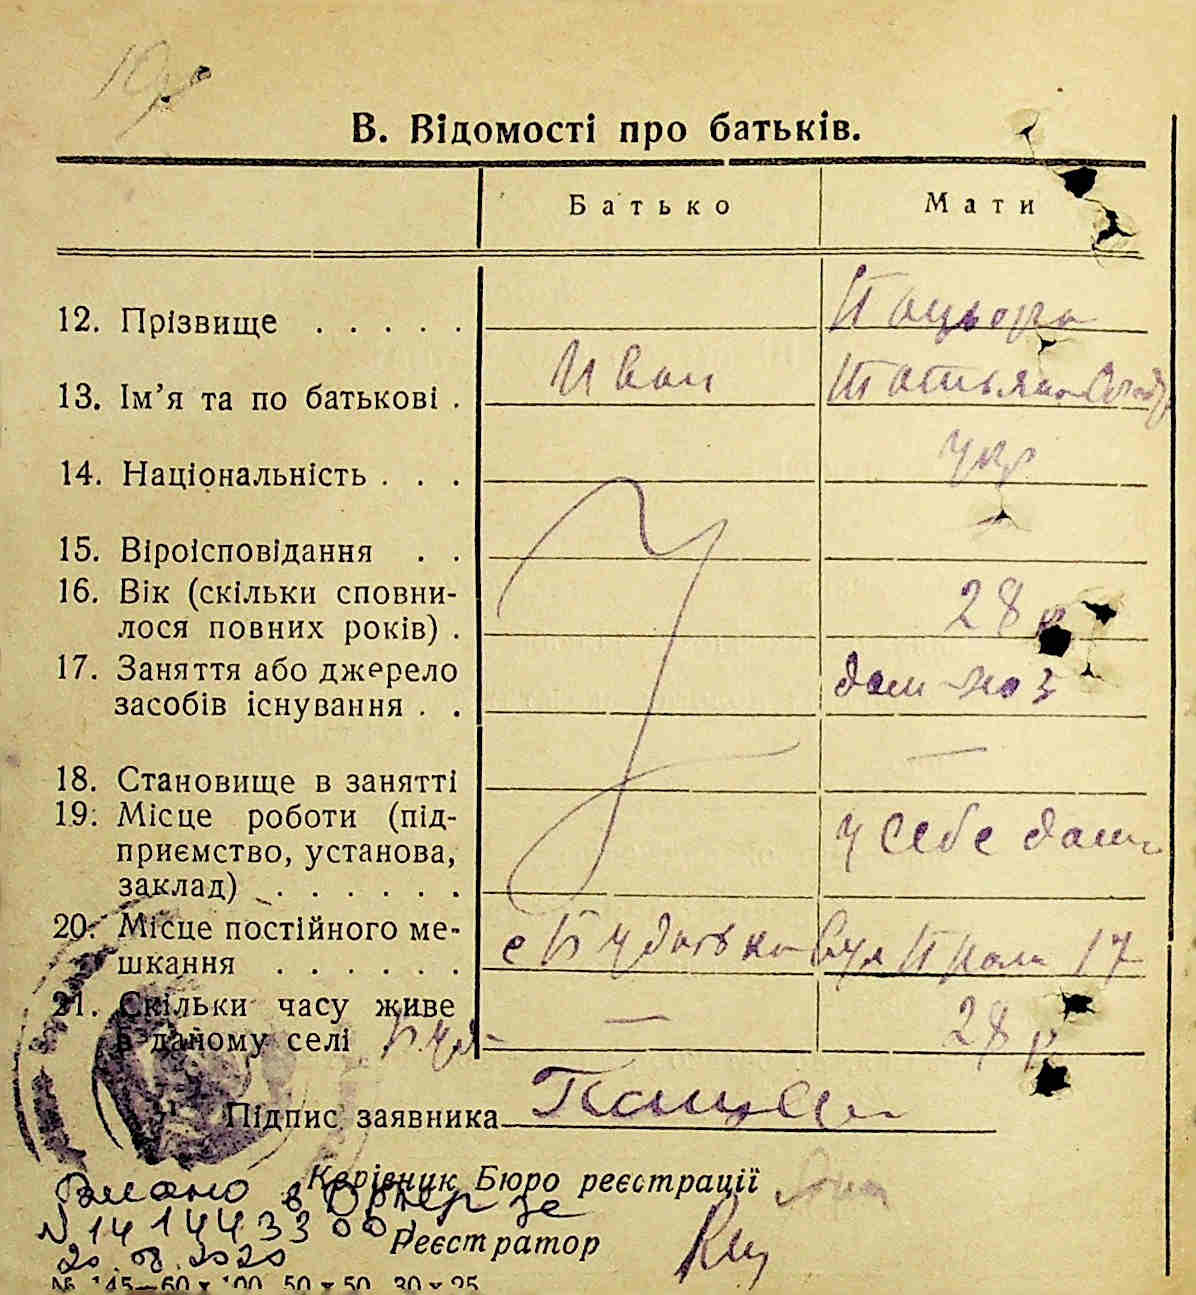 В. Відомості про батьків.
Батько Мати
12. Прізвище . . . . . Пацьора
13. Ім'я та по батькові . Иван Татьяна
14. Національність . . . укр
15. Віроісповідання . .
16. Вік (скільки сповни-
лося повних років) . 28 р
17. Заняття або джерело
засобів існування . . дом-хоз
18. Становище в занятті — —
19. Місце роботи (під-
приємство, установа,
заклад) . . . . . . у себе дома
20. Місце постійного ме-
шкання . . . . . . с Будаевка вул 17
21. Скільки часу живе
в даному селі Буд- — 28 р
Підпис заявника
Керівник Бюро реєстрації
Внесено в ДРАЦС за
N 1414433 00
Реєстратор
20.08.2020
№ 145—60 х 100 50 х 50 30 х 25